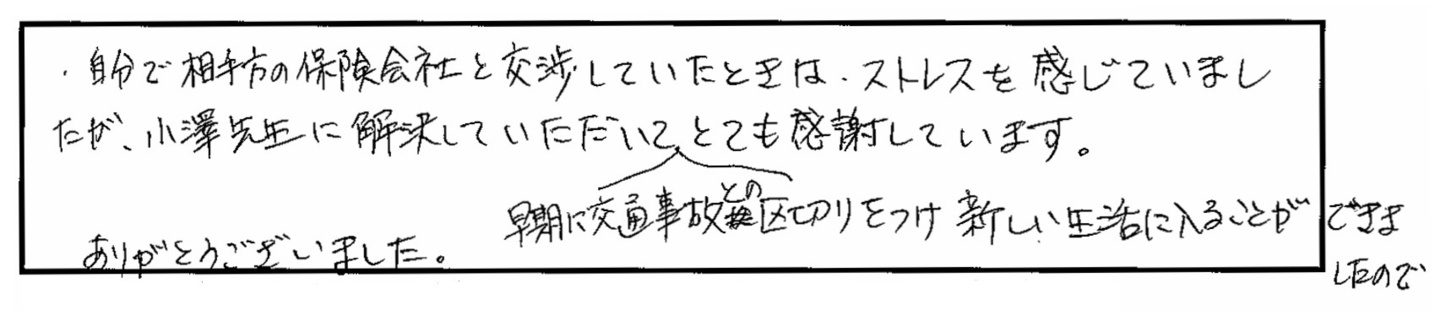 ・自分で相手方の保険会社と交渉していたときは、ストレスを感じていまし
たが、小澤先生に解決していただいて、とても感謝しています。
早期に交通事故との区切りをつけ新しい生活に入ることができま
したので
ありがとうございました。